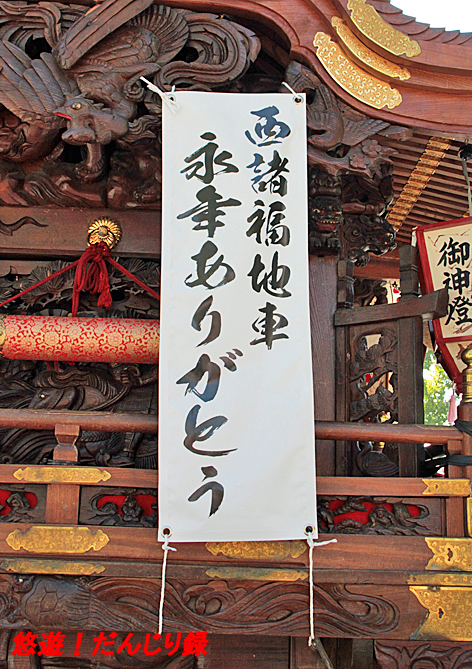 西諸福地車
永年ありがとう
御神燈
悠遊！だんじり録